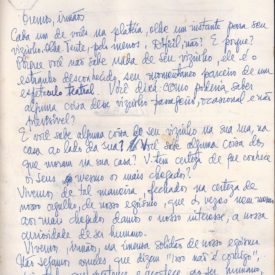 irmãos
Cada um de vocês na platéia, olhe um instante para seu
vizinho. Olhe. Tente, pelo menos. Difícil, não? E porque?
Porque você não sabe nada de seu vizinho, ele é o
estranho desconhecido, seu momentâneo parceiro de um
espetáculo teatral. Você dirá: como poderia saber
alguma coisa desse vizinho passageiro, ocasional e não
E você sabe alguma coisa de seu vizinho na sua rua, na
casa ao lado da sua? Você sabe alguma coisa dos
que moram na sua casa? V. tem certeza de que conhece
os seus mesmo os mais chegados?
Vivemos de tal maneira, fechados na certeza de
nosso orgulho, de nosso egoísmo, que às vezes nem mesmo
aos mais chegados damos o nosso interesse, a nossa
curiosidade de ser humano.
Vivemos, irmãos, na imensa solidão de nosso egoísmo.
Não sejamos aqueles que dizem "isso não é comigo",
acontece ao ser humano,